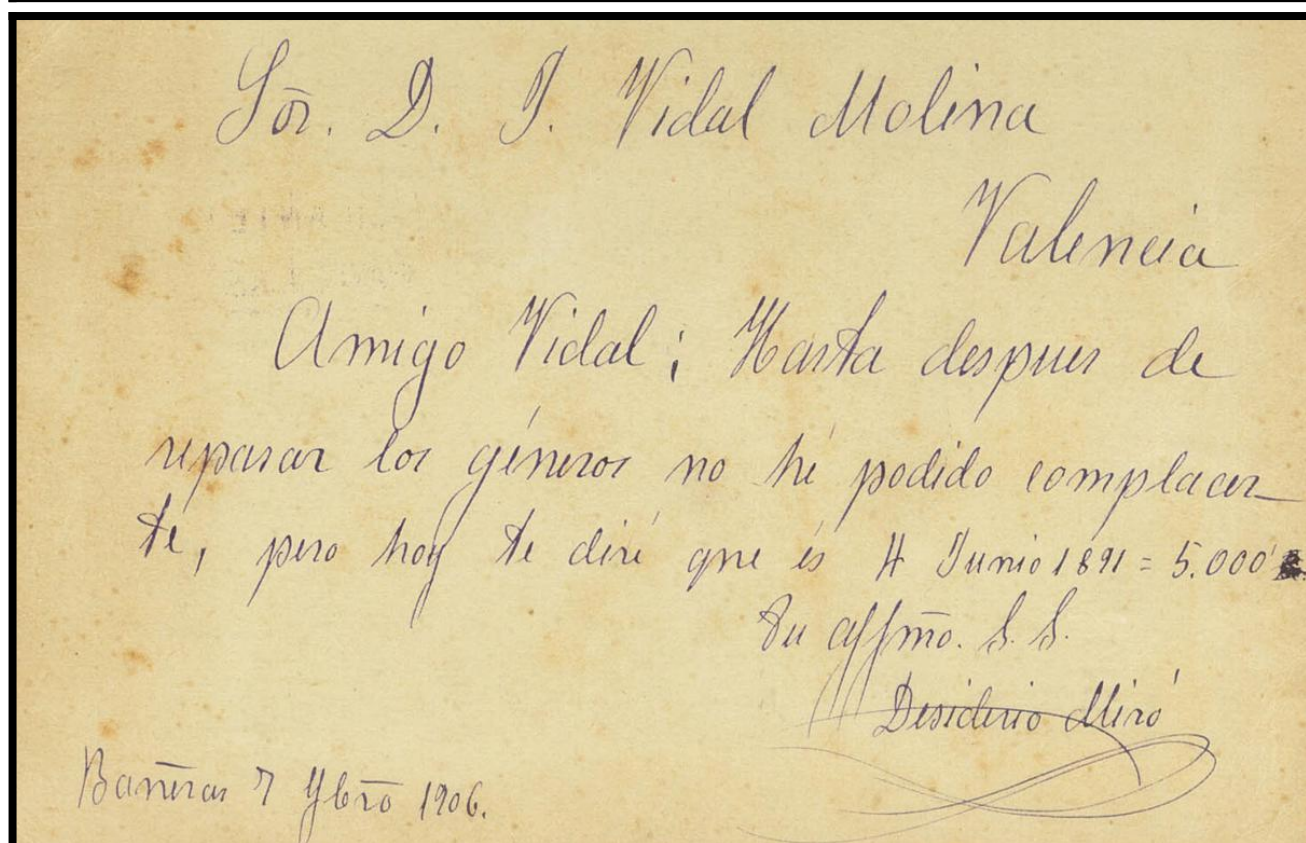 Sōr. D. J. Vidal Molina
Valencia
Amigo Vidal; Hasta despues de
repasar los géneros no hé podido complacer-
te, pero hoy te diré que és 4 Junio 1891 = 5.000
Tu affmo. S. S.
Desiderio Miró
Bañeras 7 9brō 1906.